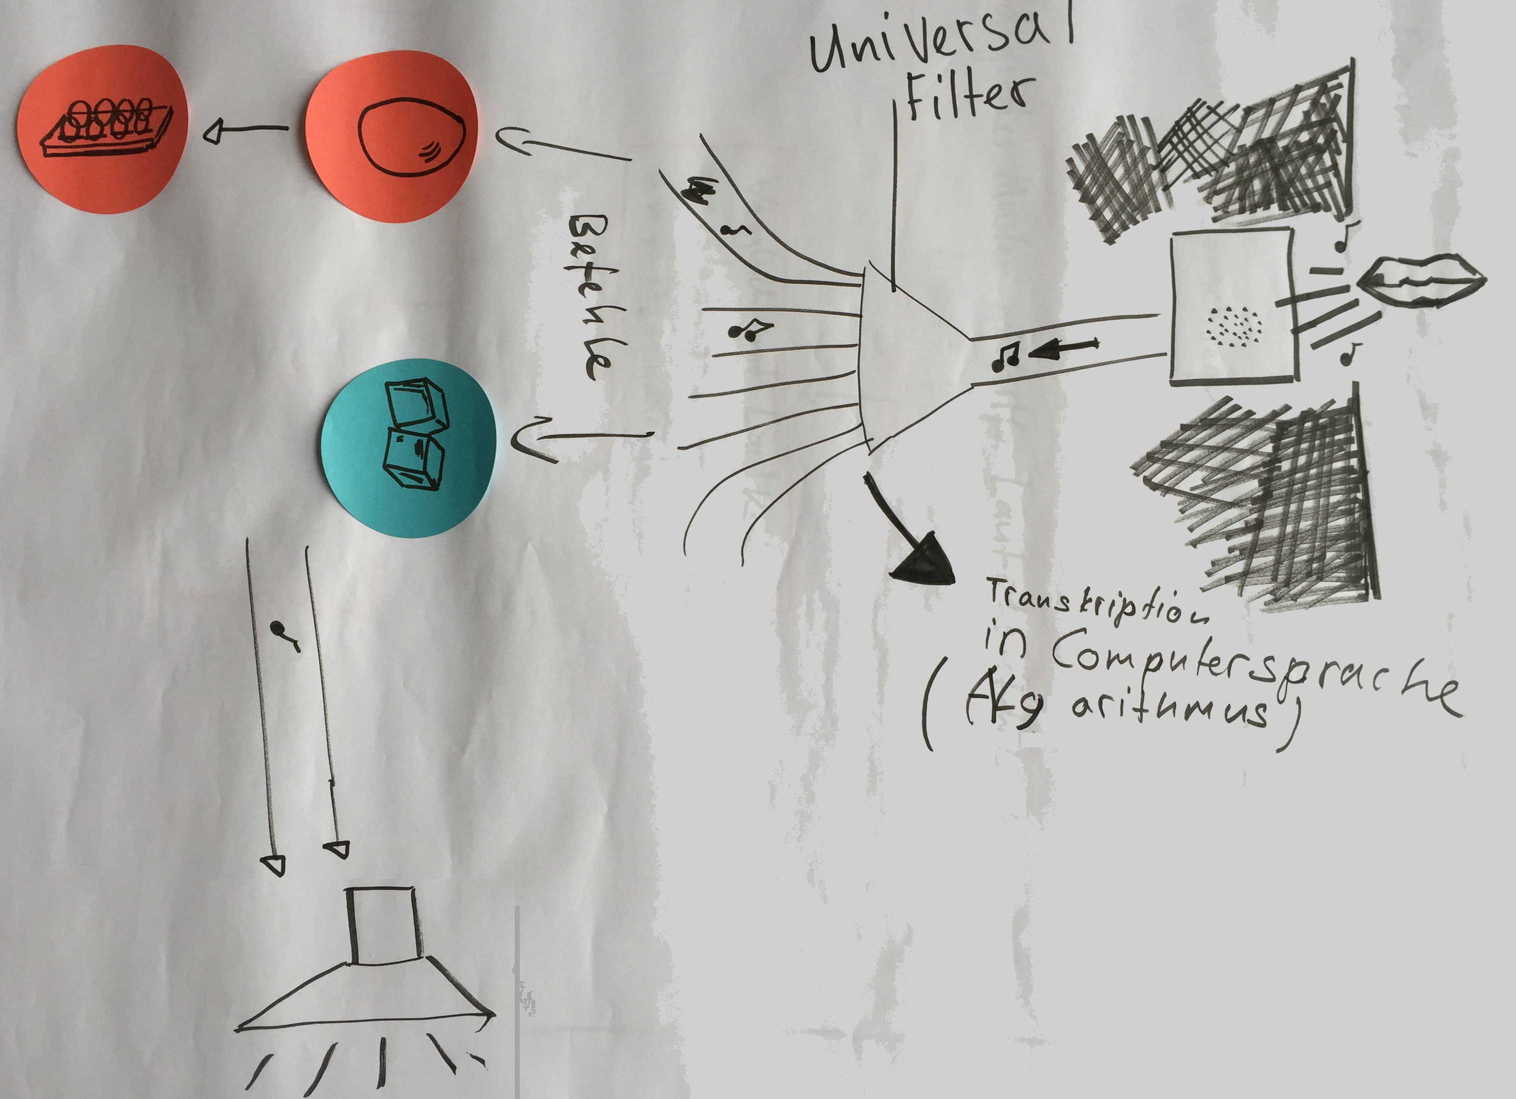 Universal
Filter
Befehle
Transkription
in Computersprache
(Algarithmus)